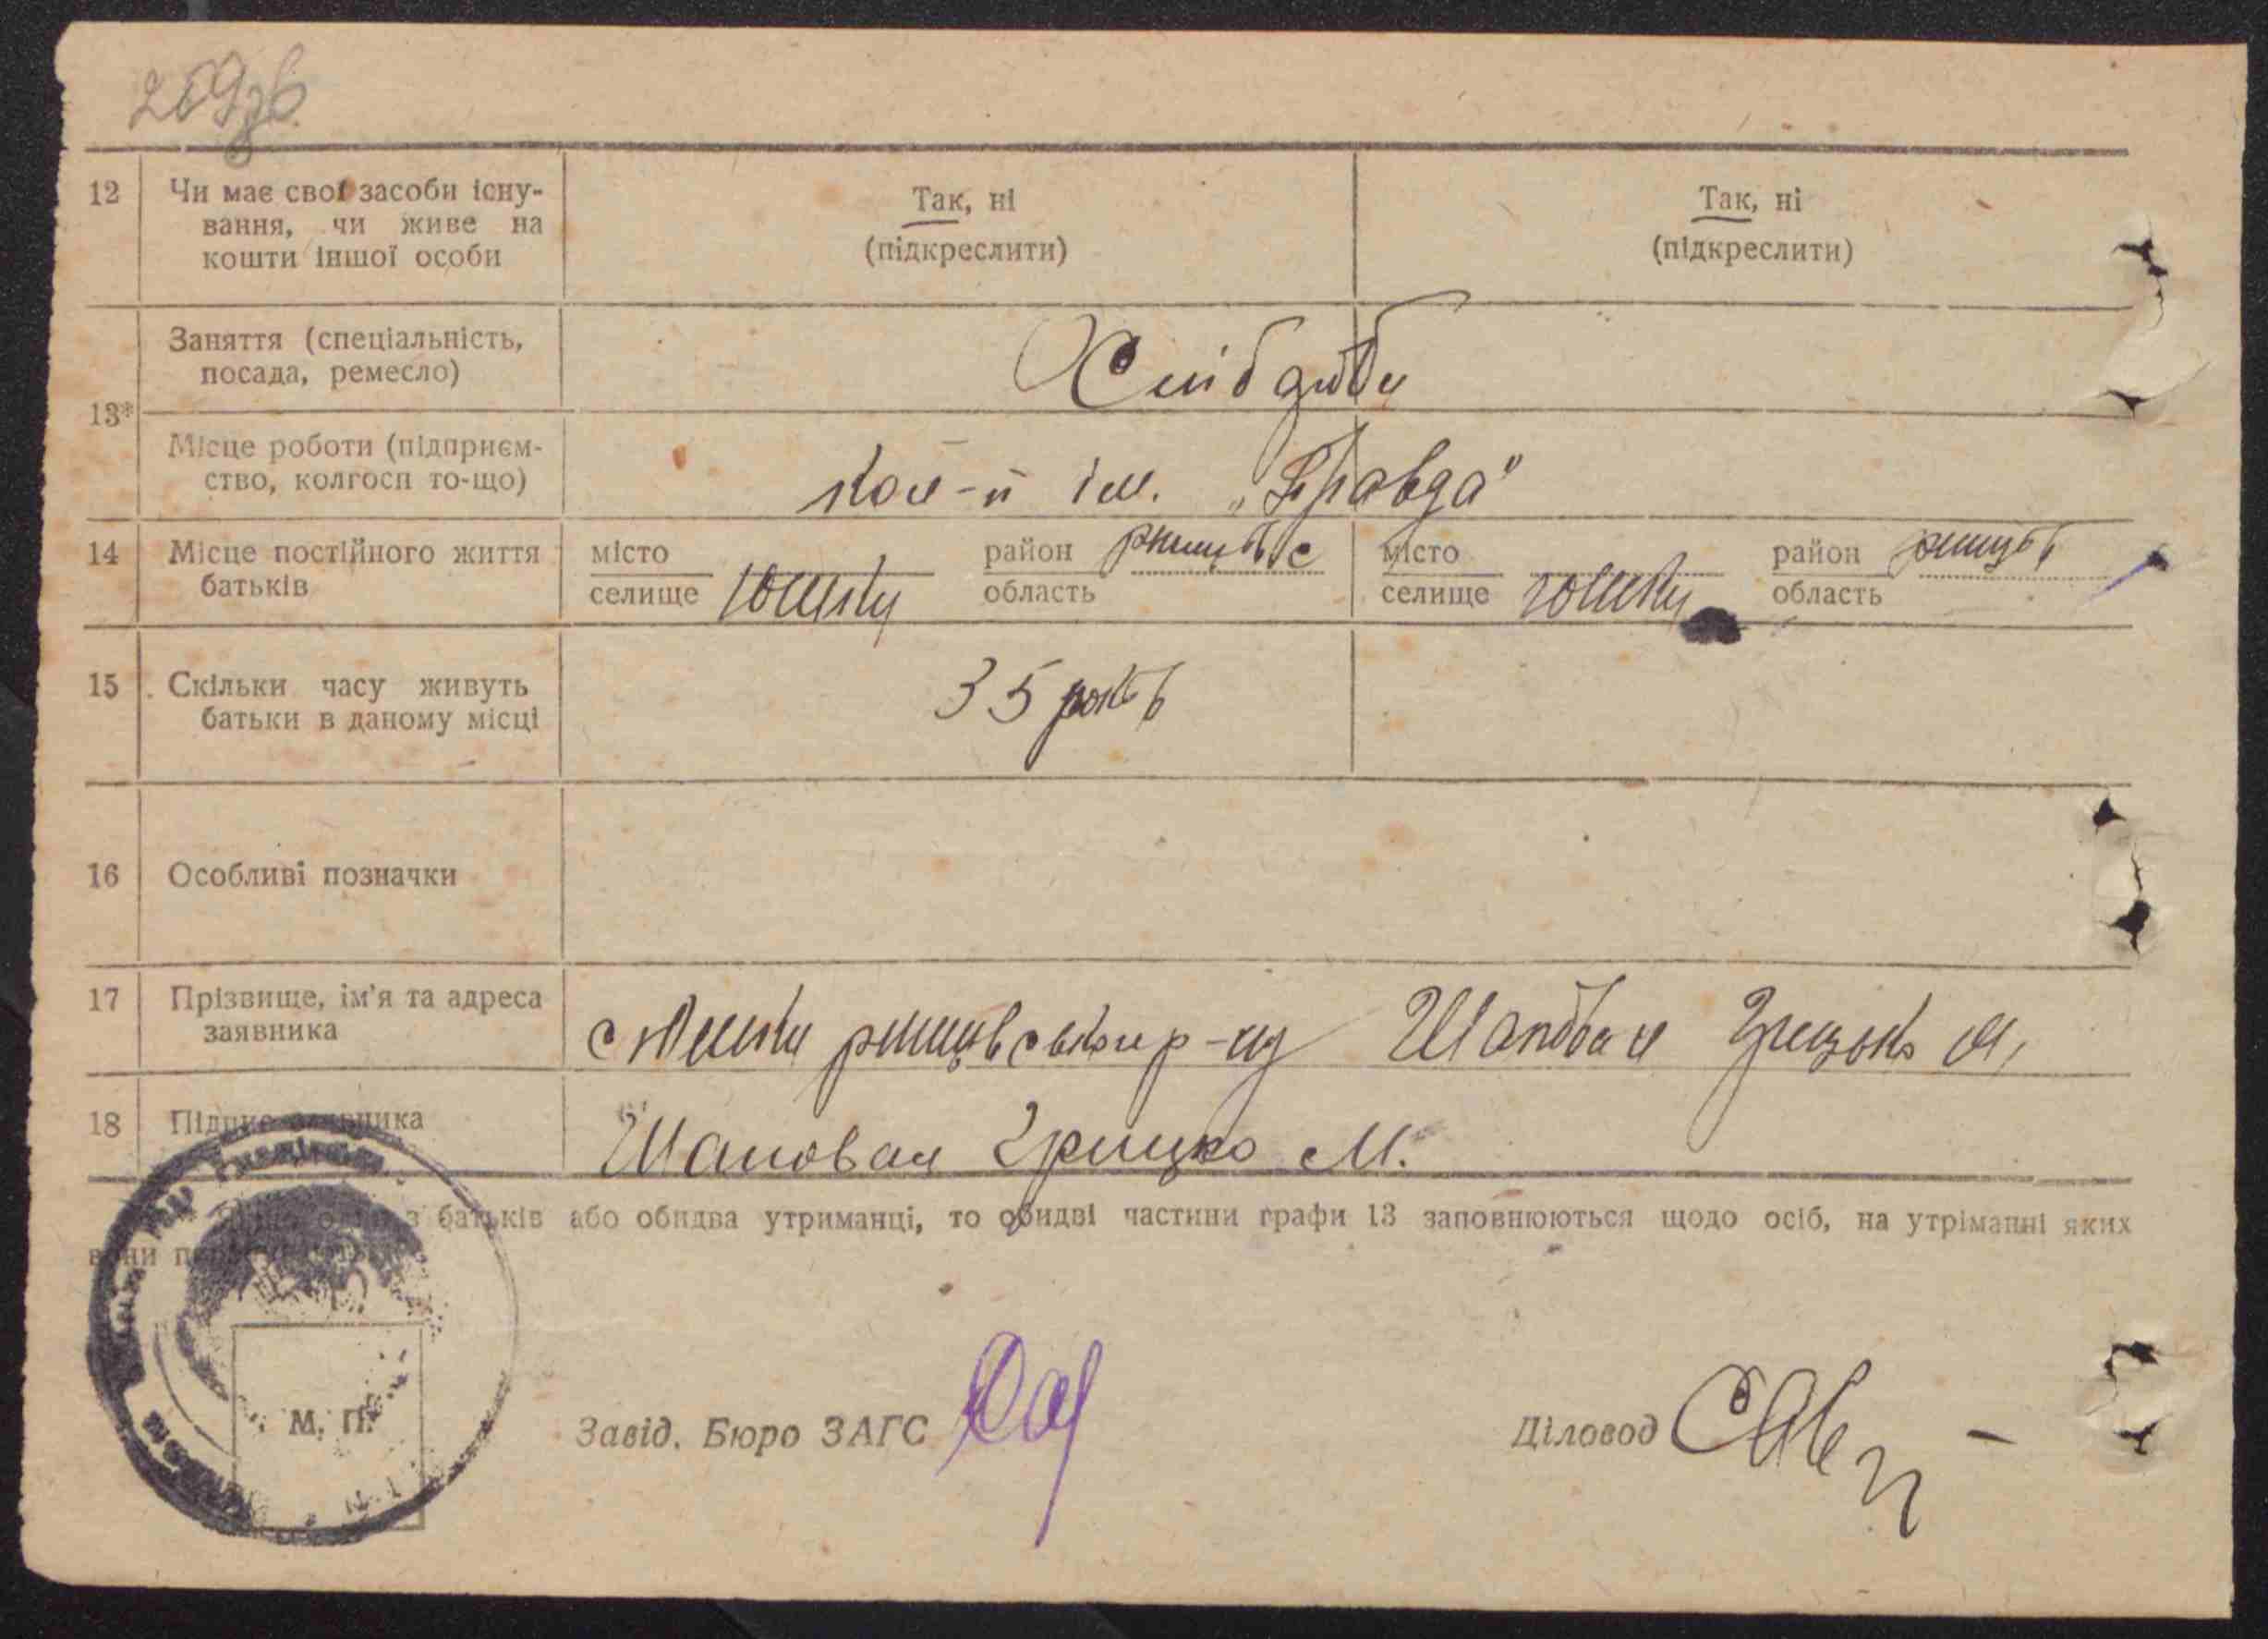 259зв
12 Чи має свої засоби існу-
вання, чи живе на
кошти іншої особи
Так, ні
(підкреслити)
Так, ні
(підкреслити)
13*
Заняття (спеціальність,
посада, ремесло)
Хліб
Місце роботи (підприєм-
ство, колгосп то-що)
кол-п ім. „Правда"
14 Місце постійного життя
батьків
місто
селище Юшки
район
область
місто
селище Юшки
район
область
15 Скільки часу живуть
батьки в даному місці
35 років
16 Особливі позначки
17 Прізвище, ім'я та адреса
заявника
с Юшки р-ну Шаповал Грицько М.
18 Підпис заявника
Шаповал Грицко М.
* Якщо один з батьків або обидва утриманці, то обидві частини графи 13 заповнюються щодо осіб, на утріманні яких
вони
М. П.
Завід. Бюро ЗАГС
Діловод